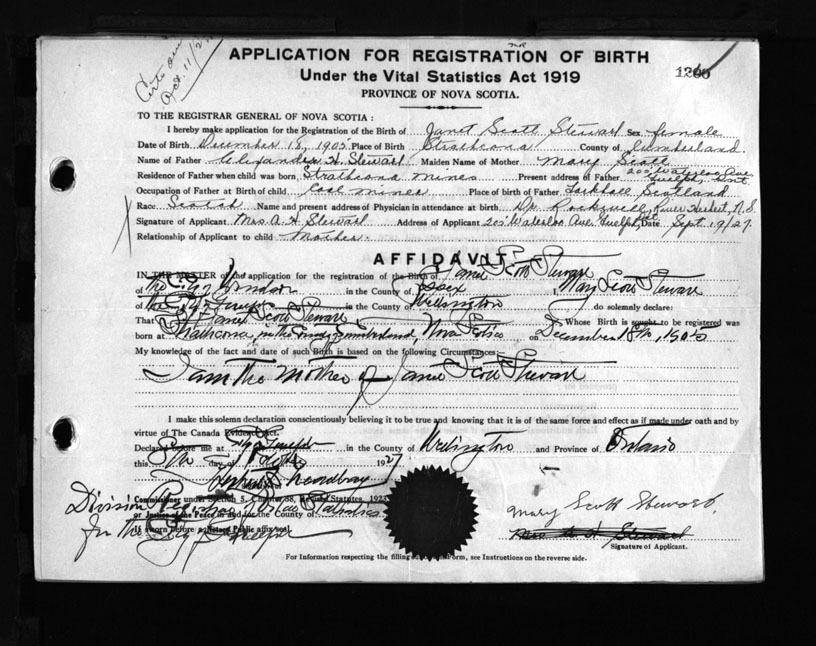 Oct. 11/27
APPLICATION FOR REGISTRATION OF BIRTH
1200
Under the Vital Statistics Act 1919
PROVINCE OF NOVA SCOTIA.
TO THE REGISTRAR GENERAL OF NOVA SCOTIA :
I hereby make application for the Registration of the Birth of Janet Scott Stewart Sex female
Date of Birth December 18, 1905 Place of Birth Strathcona County of Cumberland.
Name of Father Alexander H. Stewart Maiden Name of Mother Mary Scott
Residence of Father when child was born Strathcona Mines Present address of Father 205 Waterloo Ave. Guelph, Ont.
Occupation of Father at Birth of child Coal miner Place of birth of Father Larkhall, Scotland
Race Scotch Name and present address of Physician in attendance at birth Dr. Rockwell, River Hebert, N.S.
Signature of Applicant Mrs. A. H. Stewart Address of Applicant 205 Waterloo Ave. Guelph, Ont Date Sept. 19/27.
Relationship of Applicant to child Mother.
AFFIDAVIT
IN THE MATTER of the application for the registration of the Birth of Janet Scott Stewart
of The City Windsor in the County of Essex I, Mary Scott Stewart
of the City Guelph in the County of Wellington do solemnly declare:
That Janet Scott Stewart Whose Birth is sought to be registered was
born at Strathcona, in the County Cumberland, Nova Scotia on December 18th, 1905
My knowledge of the fact and date of such Birth is based on the following Circumstances
I am the Mother of Janet Scott Stewart
I make this solemn declaration conscientiously believing it to be true and knowing that it is of the same force and effect as if made under oath and by
virtue of The Canada Evidence Act.
Declared before me at City Guelph in the County of Wellington and Province of Ontario
this 8th day of 1927
Commissioner under Section 5, Chapter 38, Revised Statutes, 1923
or Justice of the Peace in and for the County of
If sworn before a Notary Public affix seal.
Division Registrar Vital Statistics
for the City of Guelph
Mary Scott Stewart
Mrs A H Stewart
Signature of Applicant.
For Information respecting the filling Form, see Instructions on the reverse side.